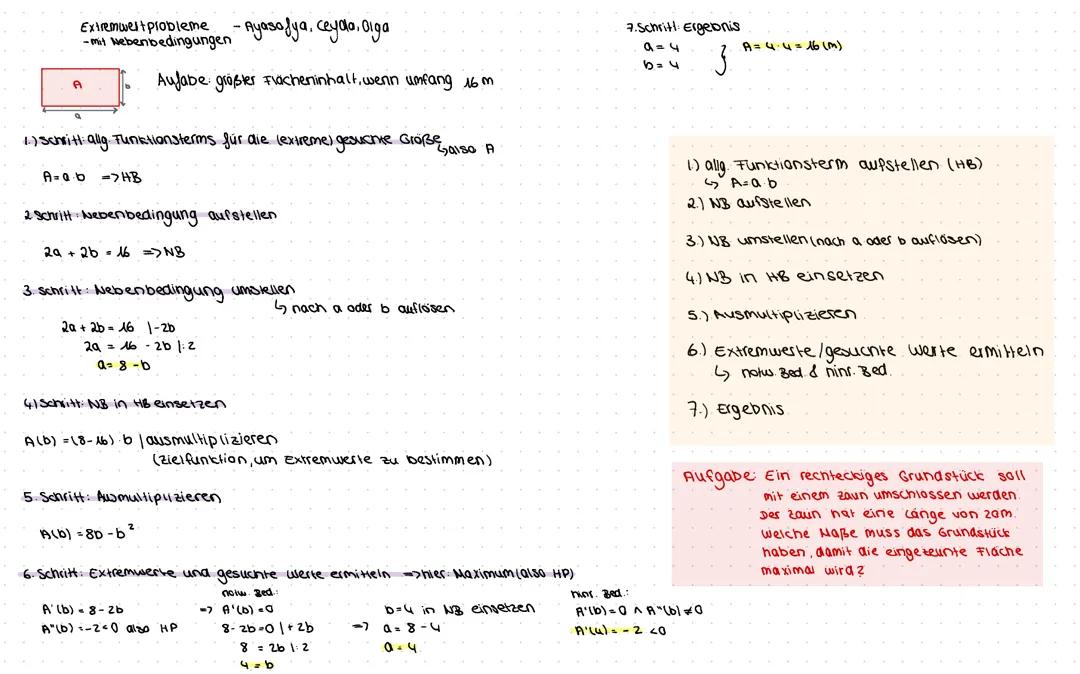 Extremwertprobleme - Ayasofya, Ceyda, Olga
-mit Nebenbedingungen
A
b
a
Aufabe: größter Flächeninhalt, wenn umfang 16 m
1.) Schritt: allg. Funktionsterms für die (extreme) gesuchte Größe
↳ also A
A=a·b => HB
2 Schritt: Nebenbedingung aufstellen
2a + 2b = 16 => NB
3. Schritt: Nebenbedingung umstellen
↳ nach a oder b auflösen
2a + 2b = 16 |-2b
2a = 16 - 2b |:2
a = 8 - b
4) Schritt: NB in HB einsetzen
A(b) = (8-16)·b | ausmultiplizieren
(Zielfunktion, um Extremwerte zu bestimmen)
5. Schritt: Ausmultiplizieren
A(b) = 8b - b²
6. Schritt: Extremwerte und gesuchte Werte ermitteln => hier: Maximum (also HP)
A'(b) = 8-2b
A''(b) = -2<0 also HP
notw. Bed.:
=> A'(b) = 0
8-2b=0 |+2b
8 = 2b |:2
4 = b
b=4 in NB einsetzen
=> a = 8 - 4
a = 4
hinr. Bed.:
A'(b)=0 ∧ A''(b) ≠0
A'(4) = -2 <0
7. Schritt: Ergebnis
a = 4
b = 4
} A = 4·4 = 16 (m)
1.) allg. Funktionsterm aufstellen (HB)
↳ A=a·b
2.) NB aufstellen
3.) NB umstellen (nach a oder b auflösen)
4.) NB in HB einsetzen
5.) Ausmultiplizieren
6.) Extremwerte/gesuchte Werte ermitteln
↳ notw. Bed. & hinr. Bed.
7.) Ergebnis
Aufgabe: Ein rechteckiges Grundstück soll
mit einem Zaun umschlossen werden.
Der Zaun hat eine Länge von 20m.
Welche Maße muss das Grundstück
haben, damit die eingezeunte Fläche
maximal wird?